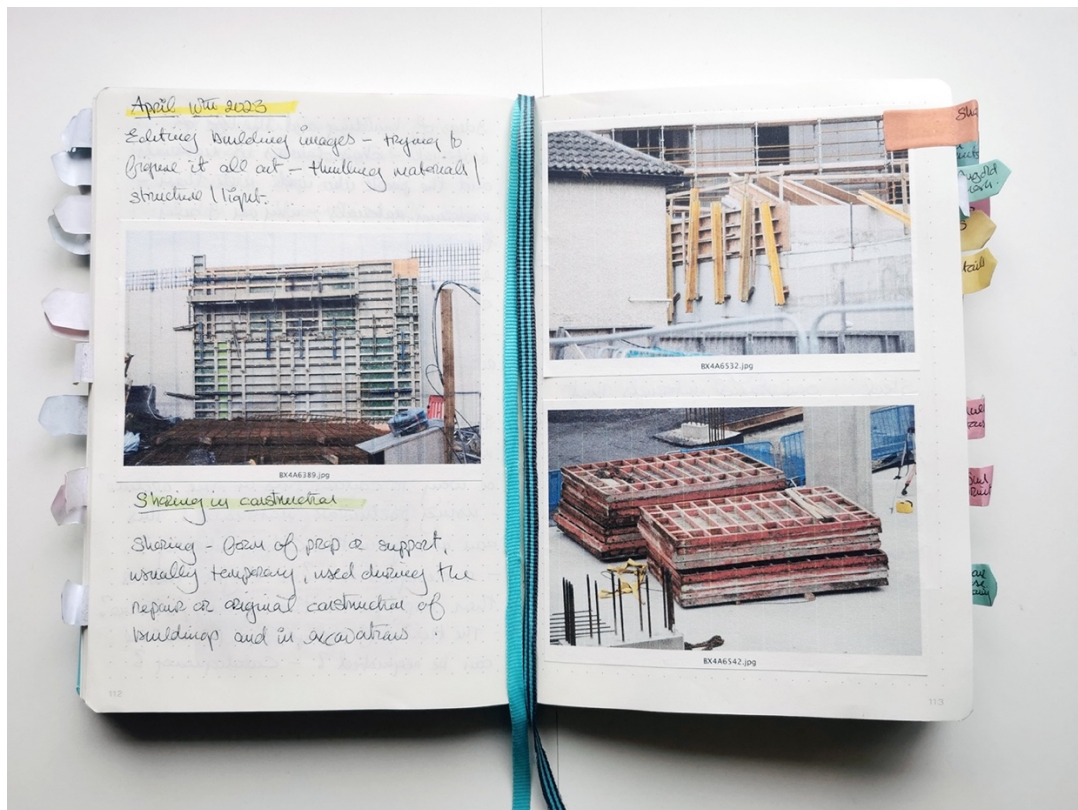 April 10th 2023
Editing building images - trying to
figure it all out - thinking materials /
structure / light.
BX4A6389.jpg
Shoring in construction
Shoring - form of prop or support,
usually temporary, used during the
repair or original construction of
buildings and in excavations
112
BX4A6532.jpg
BX4A6542.jpg
113